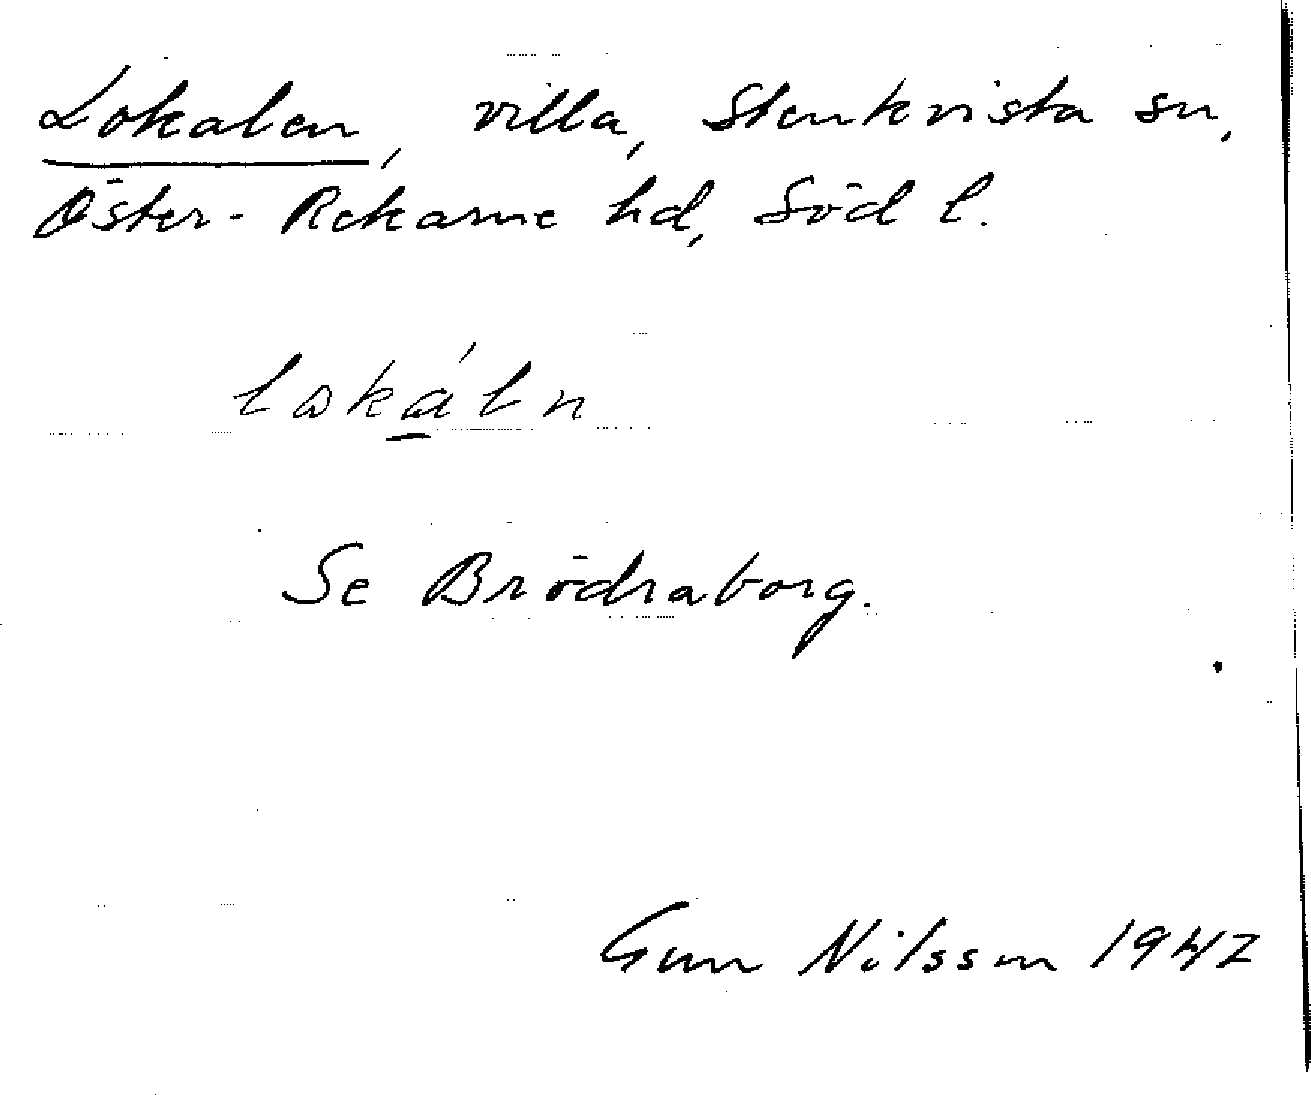 Lokalen, villa, Stenkvista sn,
Öster-Rekarne hd, Söd l.
lokáln
Se Brödraborg.
Gun Nilsson 1942